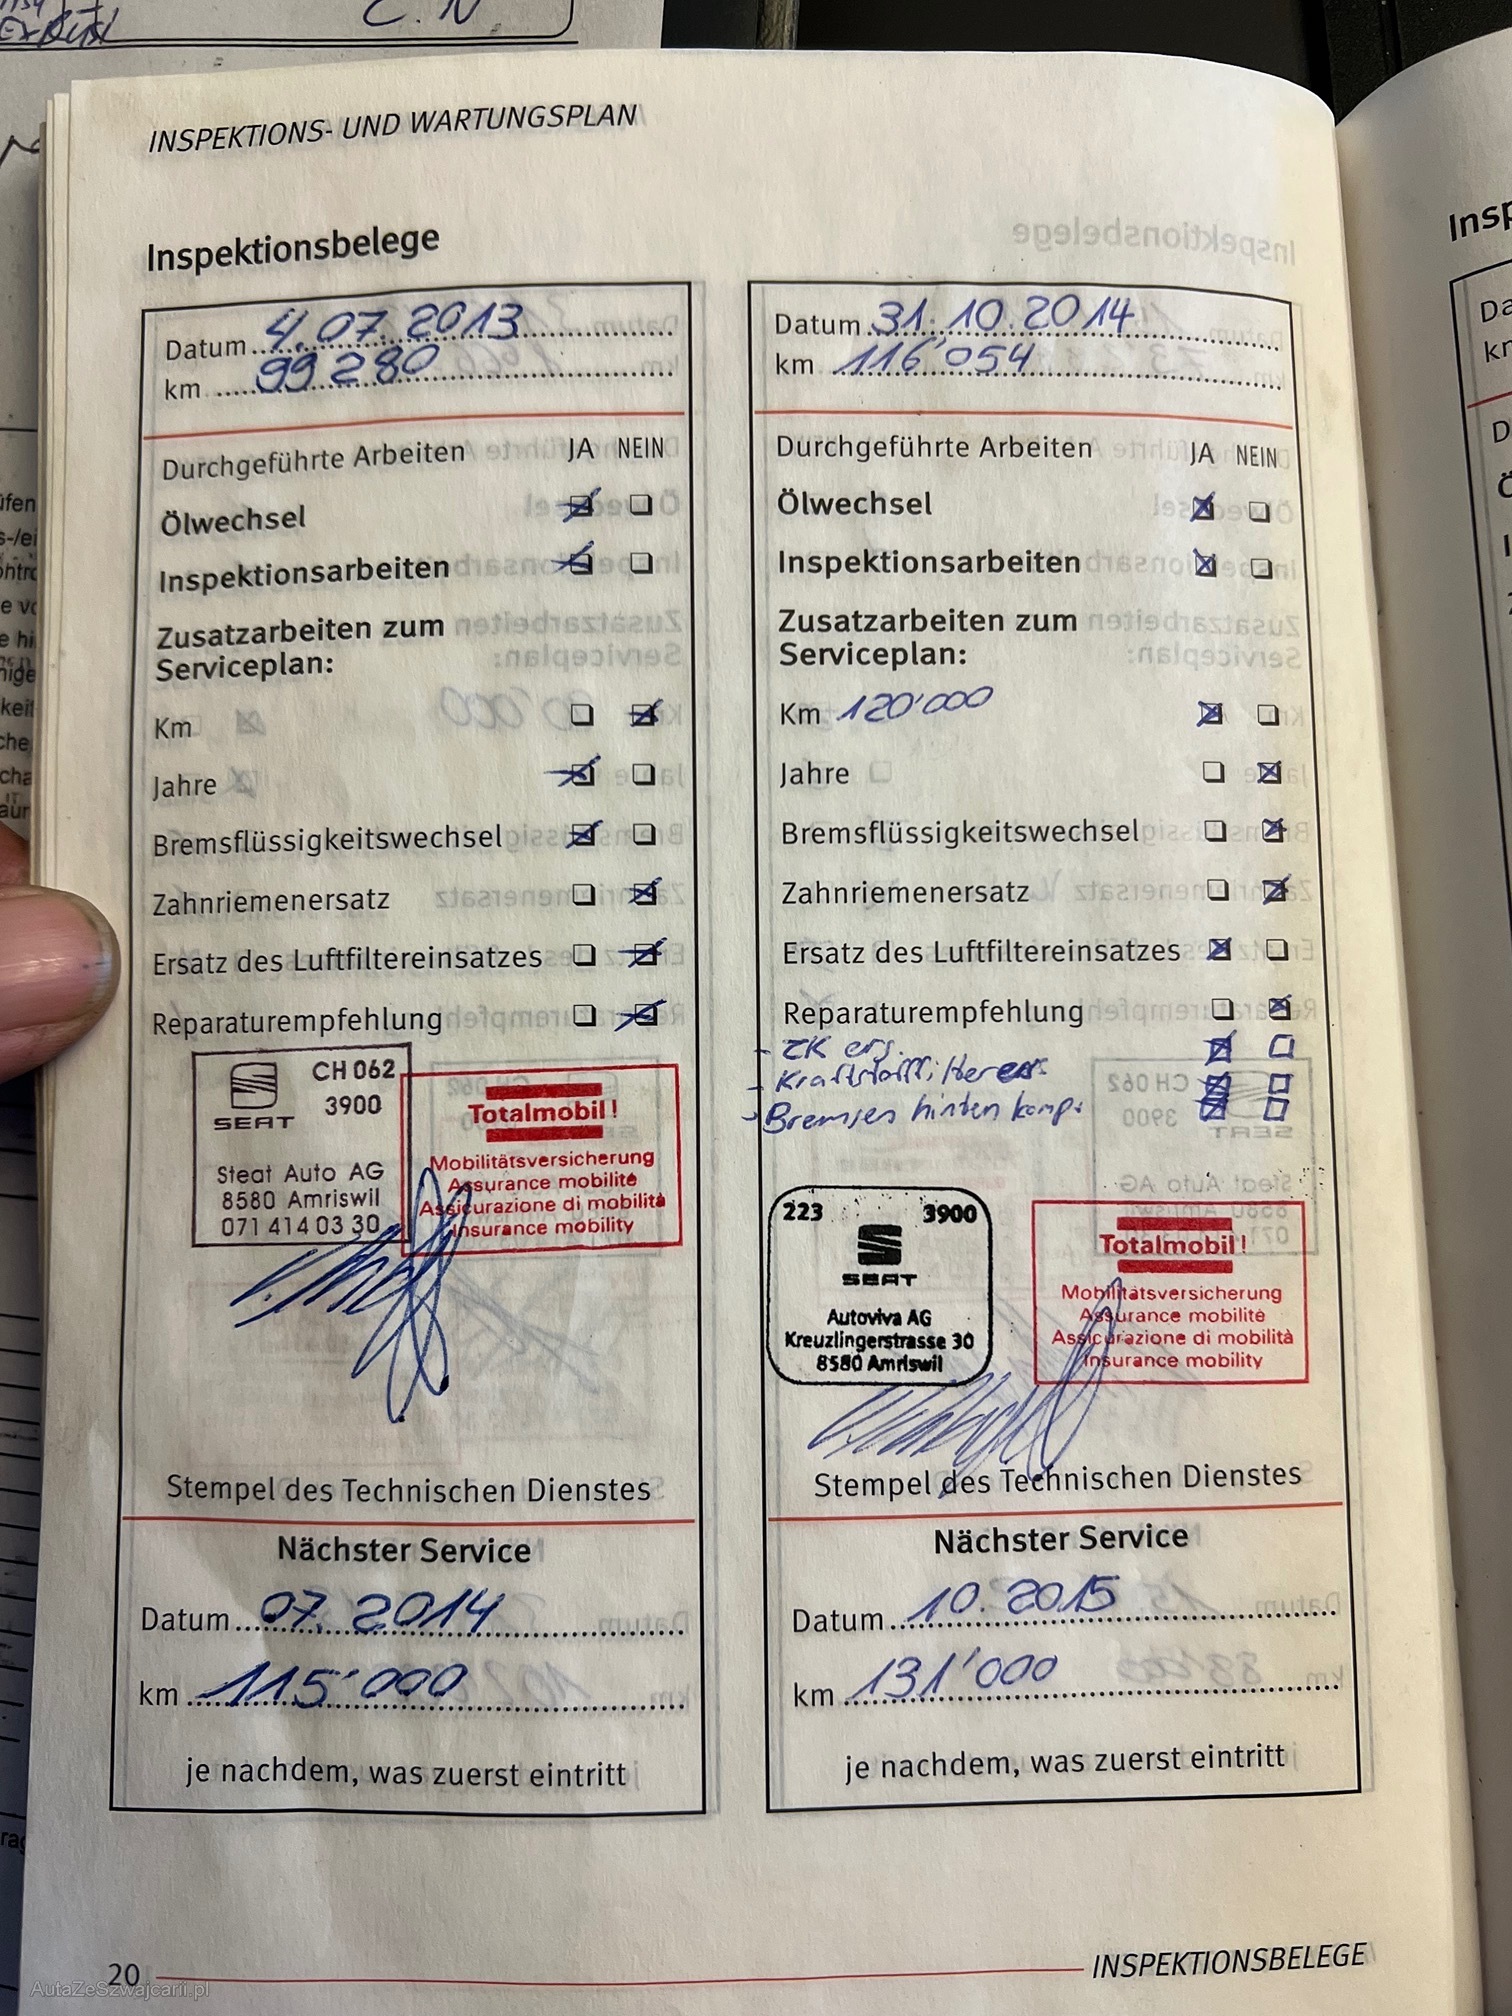 C. N.
INSPEKTIONS- UND WARTUNGSPLAN
Inspektionsbelege
Datum 4.07.2013
km 99280
Durchgeführte Arbeiten JA NEIN
Ölwechsel
Inspektionsarbeiten
Zusatzarbeiten zum
Serviceplan:
Km
Jahre
Bremsflüssigkeitswechsel
Zahnriemenersatz
Ersatz des Luftfiltereinsatzes
Reparaturempfehlung
CH 062
3900
SEAT
Steat Auto AG
8580 Amriswil
071 414 03 30
Totalmobil!
Mobilitätsversicherung
Assurance mobilité
Assicurazione di mobilità
Insurance mobility
Stempel des Technischen Dienstes
Nächster Service
Datum 07.2014
km 115'000
je nachdem, was zuerst eintritt
Datum 31.10.2014
km 116'054
Durchgeführte Arbeiten JA NEIN
Ölwechsel
Inspektionsarbeiten
Zusatzarbeiten zum
Serviceplan:
Km 120'000
Jahre
Bremsflüssigkeitswechsel
Zahnriemenersatz
Ersatz des Luftfiltereinsatzes
Reparaturempfehlung
- ZK ers.
- Kraftstofffilter ers.
- Bremsen hinten komp.
223 3900
SEAT
Autoviva AG
Kreuzlingerstrasse 30
8580 Amriswil
Totalmobil!
Mobilitätsversicherung
Assurance mobilité
Assicurazione di mobilità
Insurance mobility
Stempel des Technischen Dienstes
Nächster Service
Datum 10.2015
km 131'000
je nachdem, was zuerst eintritt
20
INSPEKTIONSBELEGE
AutaZeSzwajcarii.pl